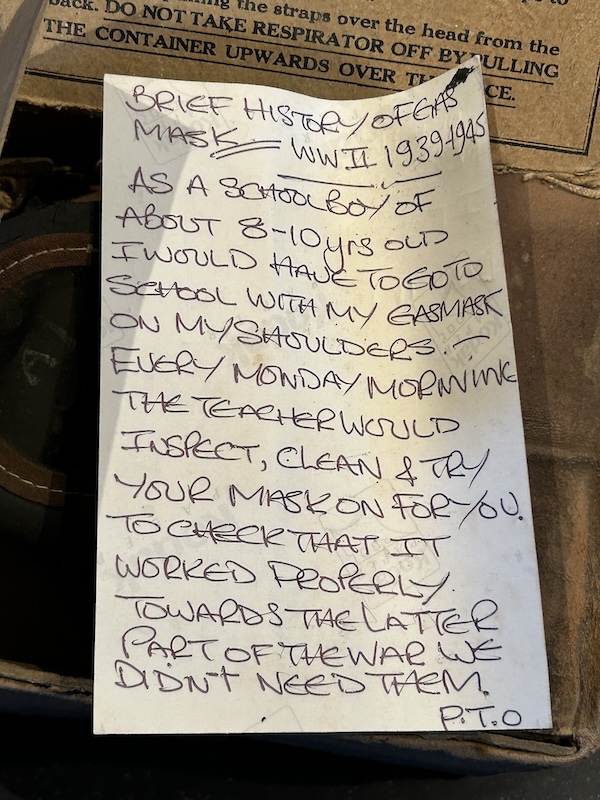 back. DO NOT TAKE RESPIRATOR OFF BY PULLING
the straps over the head from the
THE CONTAINER UPWARDS OVER
BRIEF HISTORY OF GAS
MASK WW II 1939-1945
AS A SCHOOLBOY OF
ABOUT 8-10 yrs OLD
I WOULD HAVE TO GO TO
SCHOOL WITH MY GASMASK
ON MY SHOULDERS. —
EVERY MONDAY MORNING
THE TEACHER WOULD
INSPECT, CLEAN & TRY
YOUR MASK ON FOR YOU.
TO CHECK THAT IT
WORKED PROPERLY.
TOWARDS THE LATTER
PART OF THE WAR WE
DIDN'T NEED THEM.
P.T.O